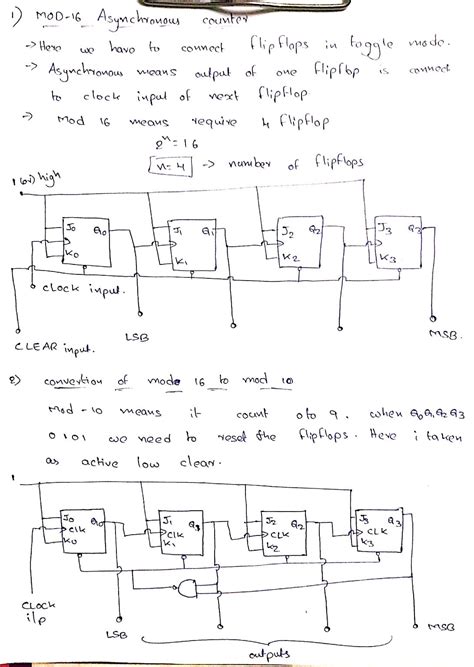 1) MOD-16 Asynchronous counter
-> Here we have to connect flipflops in toggle mode.
-> Asynchronous means output of one flipflop is connect
to clock input of next flipflop
-> Mod 16 means require 4 flipflop
2^n = 16
n=4 -> number of flipflops
1 (or) high
J0 Q0 J1 Q1 J2 Q2 J3 Q3
K0 K1 K2 K3
clock input.
CLEAR input. LSB MSB.
2) convertion of mode 16 to mod 10
Mod-10 means it count 0 to 9. when Q0Q1Q2Q3
0101 we need to reset the flipflops. Here i taken
as active low clear.
1
J0 Q0 J1 Q3 J2 Q2 J3 Q3
CLK CLK CLK CLK
K0 K1 K2 K3
CLOCK
i/p
LSB MSB
outputs